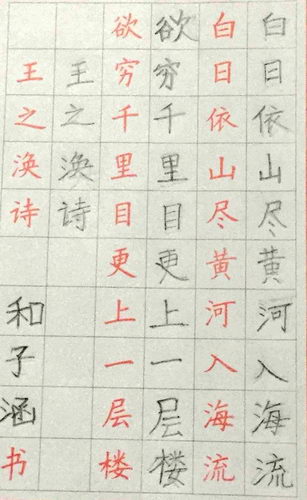 白日依山尽黄河入海流
白日依山尽黄河入海流
欲穷千里目更上一层楼
欲穷千里目更上一层楼
王之涣诗
王之涣诗 和子涵书